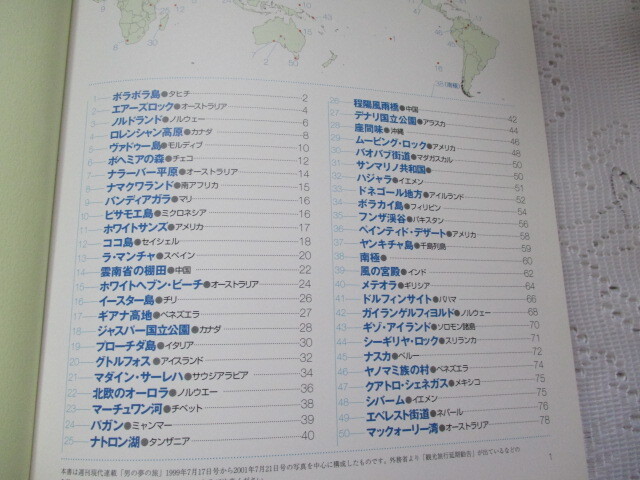 1 ボラボラ島●タヒチ 2
2 エアーズロック●オーストラリア 4
3 ノルドランド●ノルウェー 6
4 ロレンシャン高原●カナダ 8
5 ヴァドゥー島●モルディブ 10
6 ボヘミアの森●チェコ 12
7 ナラーバー平原●オーストラリア 14
8 ナマクワランド●南アフリカ 15
9 バンディアガラ●マリ 16
10 ピサモエ島●ミクロネシア 16
11 ホワイトサンズ●アメリカ 17
12 ココ島●セイシェル 18
13 ラ・マンチャ●スペイン 20
14 雲南省の棚田●中国 22
15 ホワイトヘブン・ビーチ●オーストラリア 24
16 イースター島●チリ 26
17 ギアナ高地●ベネズエラ 27
18 ジャスパー国立公園●カナダ 28
19 プローチダ島●イタリア 30
20 グトルフォス●アイスランド 32
21 マダイン・サーレハ●サウジアラビア 34
22 北欧のオーロラ●ノルウエー 36
23 マーチュワン河●チベット 38
24 パガン●ミャンマー 39
25 ナトロン湖●タンザニア 40
26 程陽風雨橋●中国 42
27 デナリ国立公園●アラスカ 44
28 座間味●沖縄 46
29 ムービング・ロック●アメリカ 48
30 バオバブ街道●マダガスカル 50
31 サンマリノ共和国● 50
32 ハジャラ●イエメン 51
33 ドネゴール地方●アイルランド 52
34 ボラカイ島●フィリピン 54
35 フンザ渓谷●パキスタン 56
36 ペインティド・デザート●アメリカ 58
37 ヤンキチャ島●千島列島 59
38 南極● 60
39 風の宮殿●インド 62
40 メテオラ●ギリシア 64
41 ドルフィンサイト●バハマ 66
42 ガイランゲルフィヨルド●ノルウェー 68
43 ギゾ・アイランド●ソロモン諸島 70
44 シーギリヤ・ロック●スリランカ 71
45 ナスカ●ペルー 72
46 ヤノマミ族の村●ベネズエラ 74
47 クアトロ・シェネガス●メキシコ 75
48 シバーム●イエメン 75
49 エベレスト街道●ネパール 76
50 マックォーリー湾●オーストラリア 78
1
本書は週刊現代連載「男の夢の旅」1999年7月17日号から2001年7月21日号の写真を中心に構成したものです。外務省より「観光旅行延期勧告」が出ているなどの